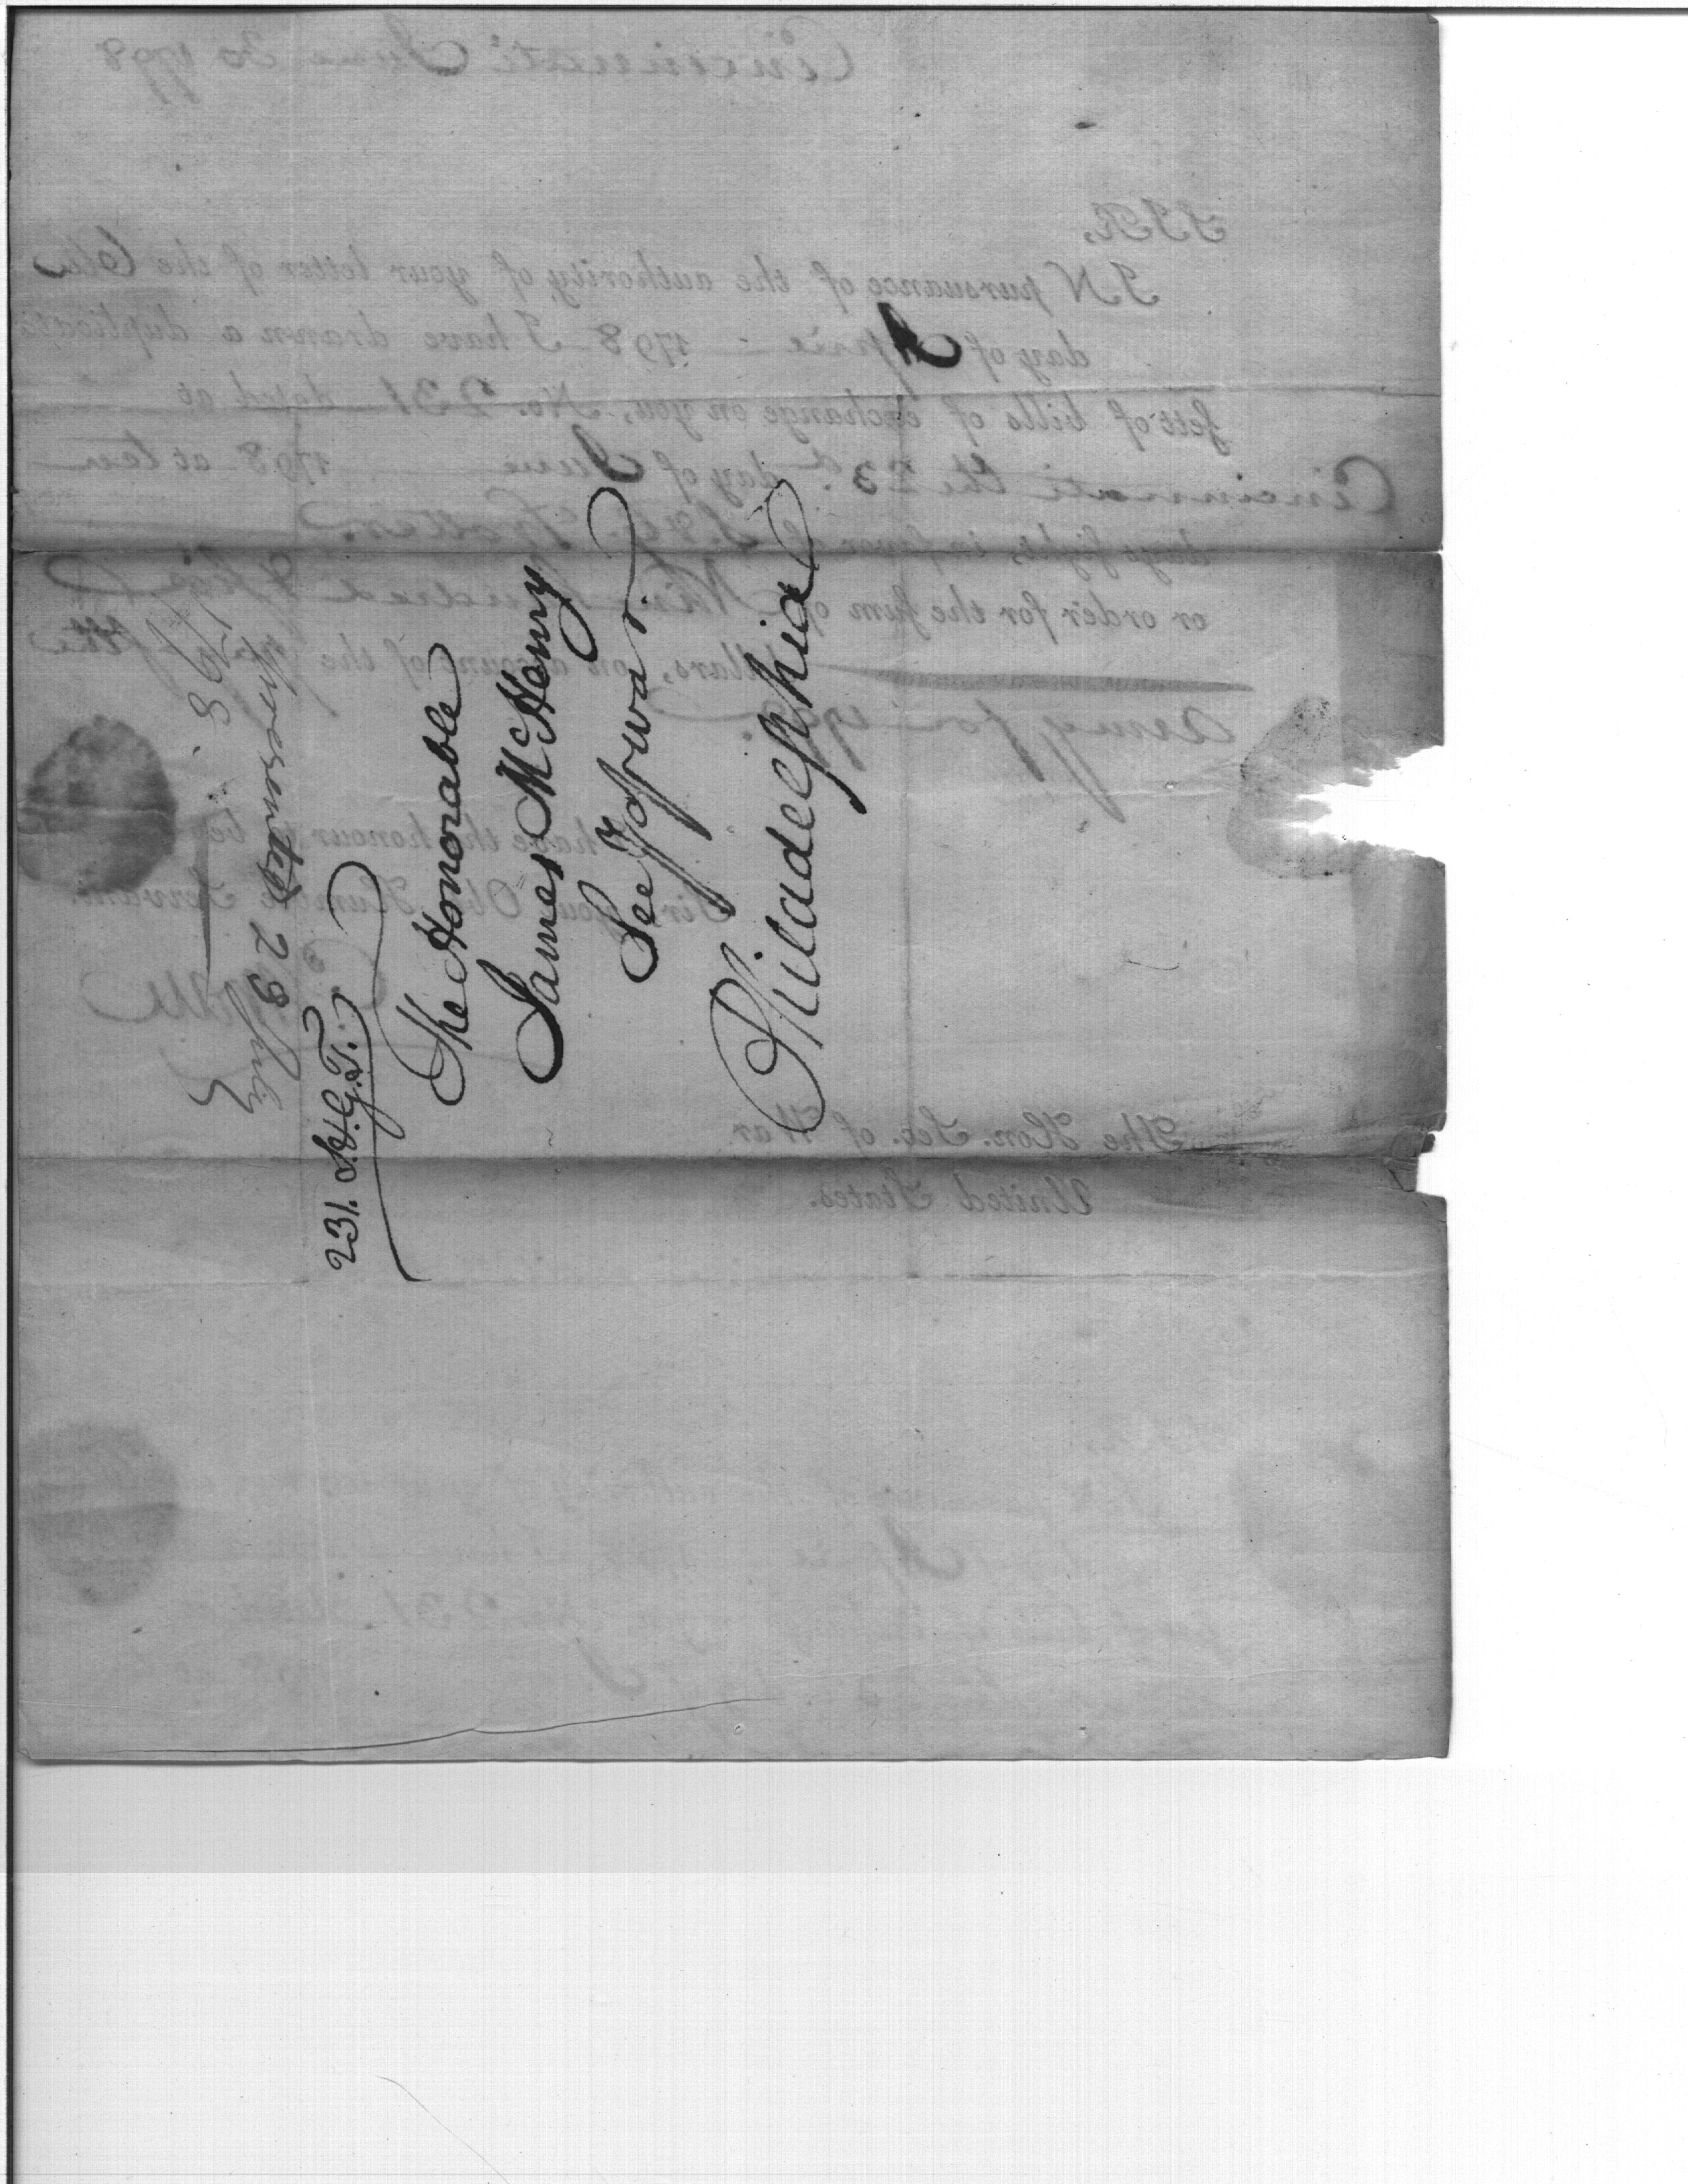 231. S. & G. T.
The Honorable
James McHenry
Secy of war
Philadelphia
29 July
Cincinnati June 30 1798
SIR,
IN pursuance of the authority of your letter of the 6th
day of April 1798 I have drawn a duplicate
sett of bills of exchange on you, No. 231 dated at
Cincinnati the 23d. day of June 1798 at ten
days sight, in favor of
or order for the sum of Nine hundred &
dollars, on account of the
army for 1798.
have the honour to be
Sir, your Obt. Humble Servant.
The Hon. Sec. of War
United States.